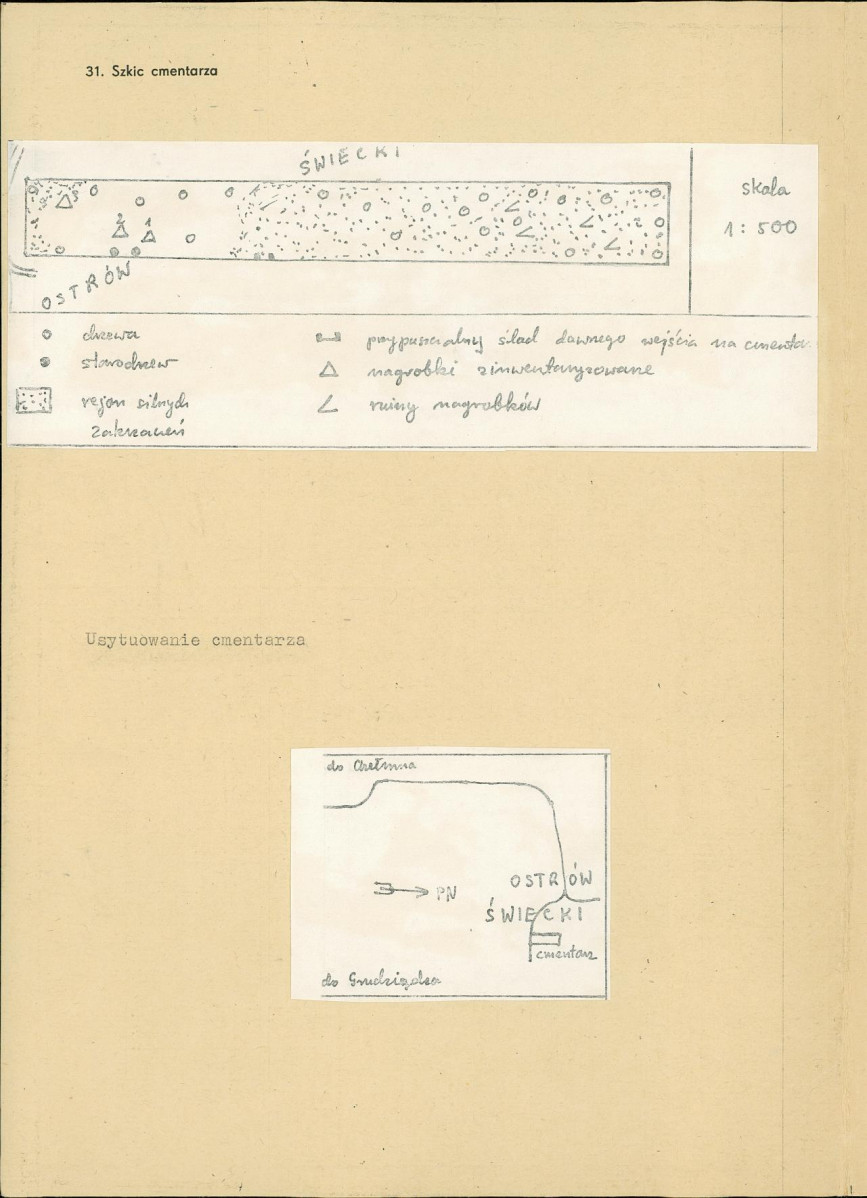 31. Szkic cmentarza
ŚWIECKI
skala
1 : 500
2 1
OSTRÓW
drzewa
starodrzew
rejon silnych
zakrzaceń
przypuszczalny ślad dawnego wejścia na cmenta
nagrobki zinwentaryzowane
ruiny nagrobków
Usytuowanie cmentarza
do Chełmna
OSTRÓW
PN
ŚWIECKI
cmentarz
do Grudziądza